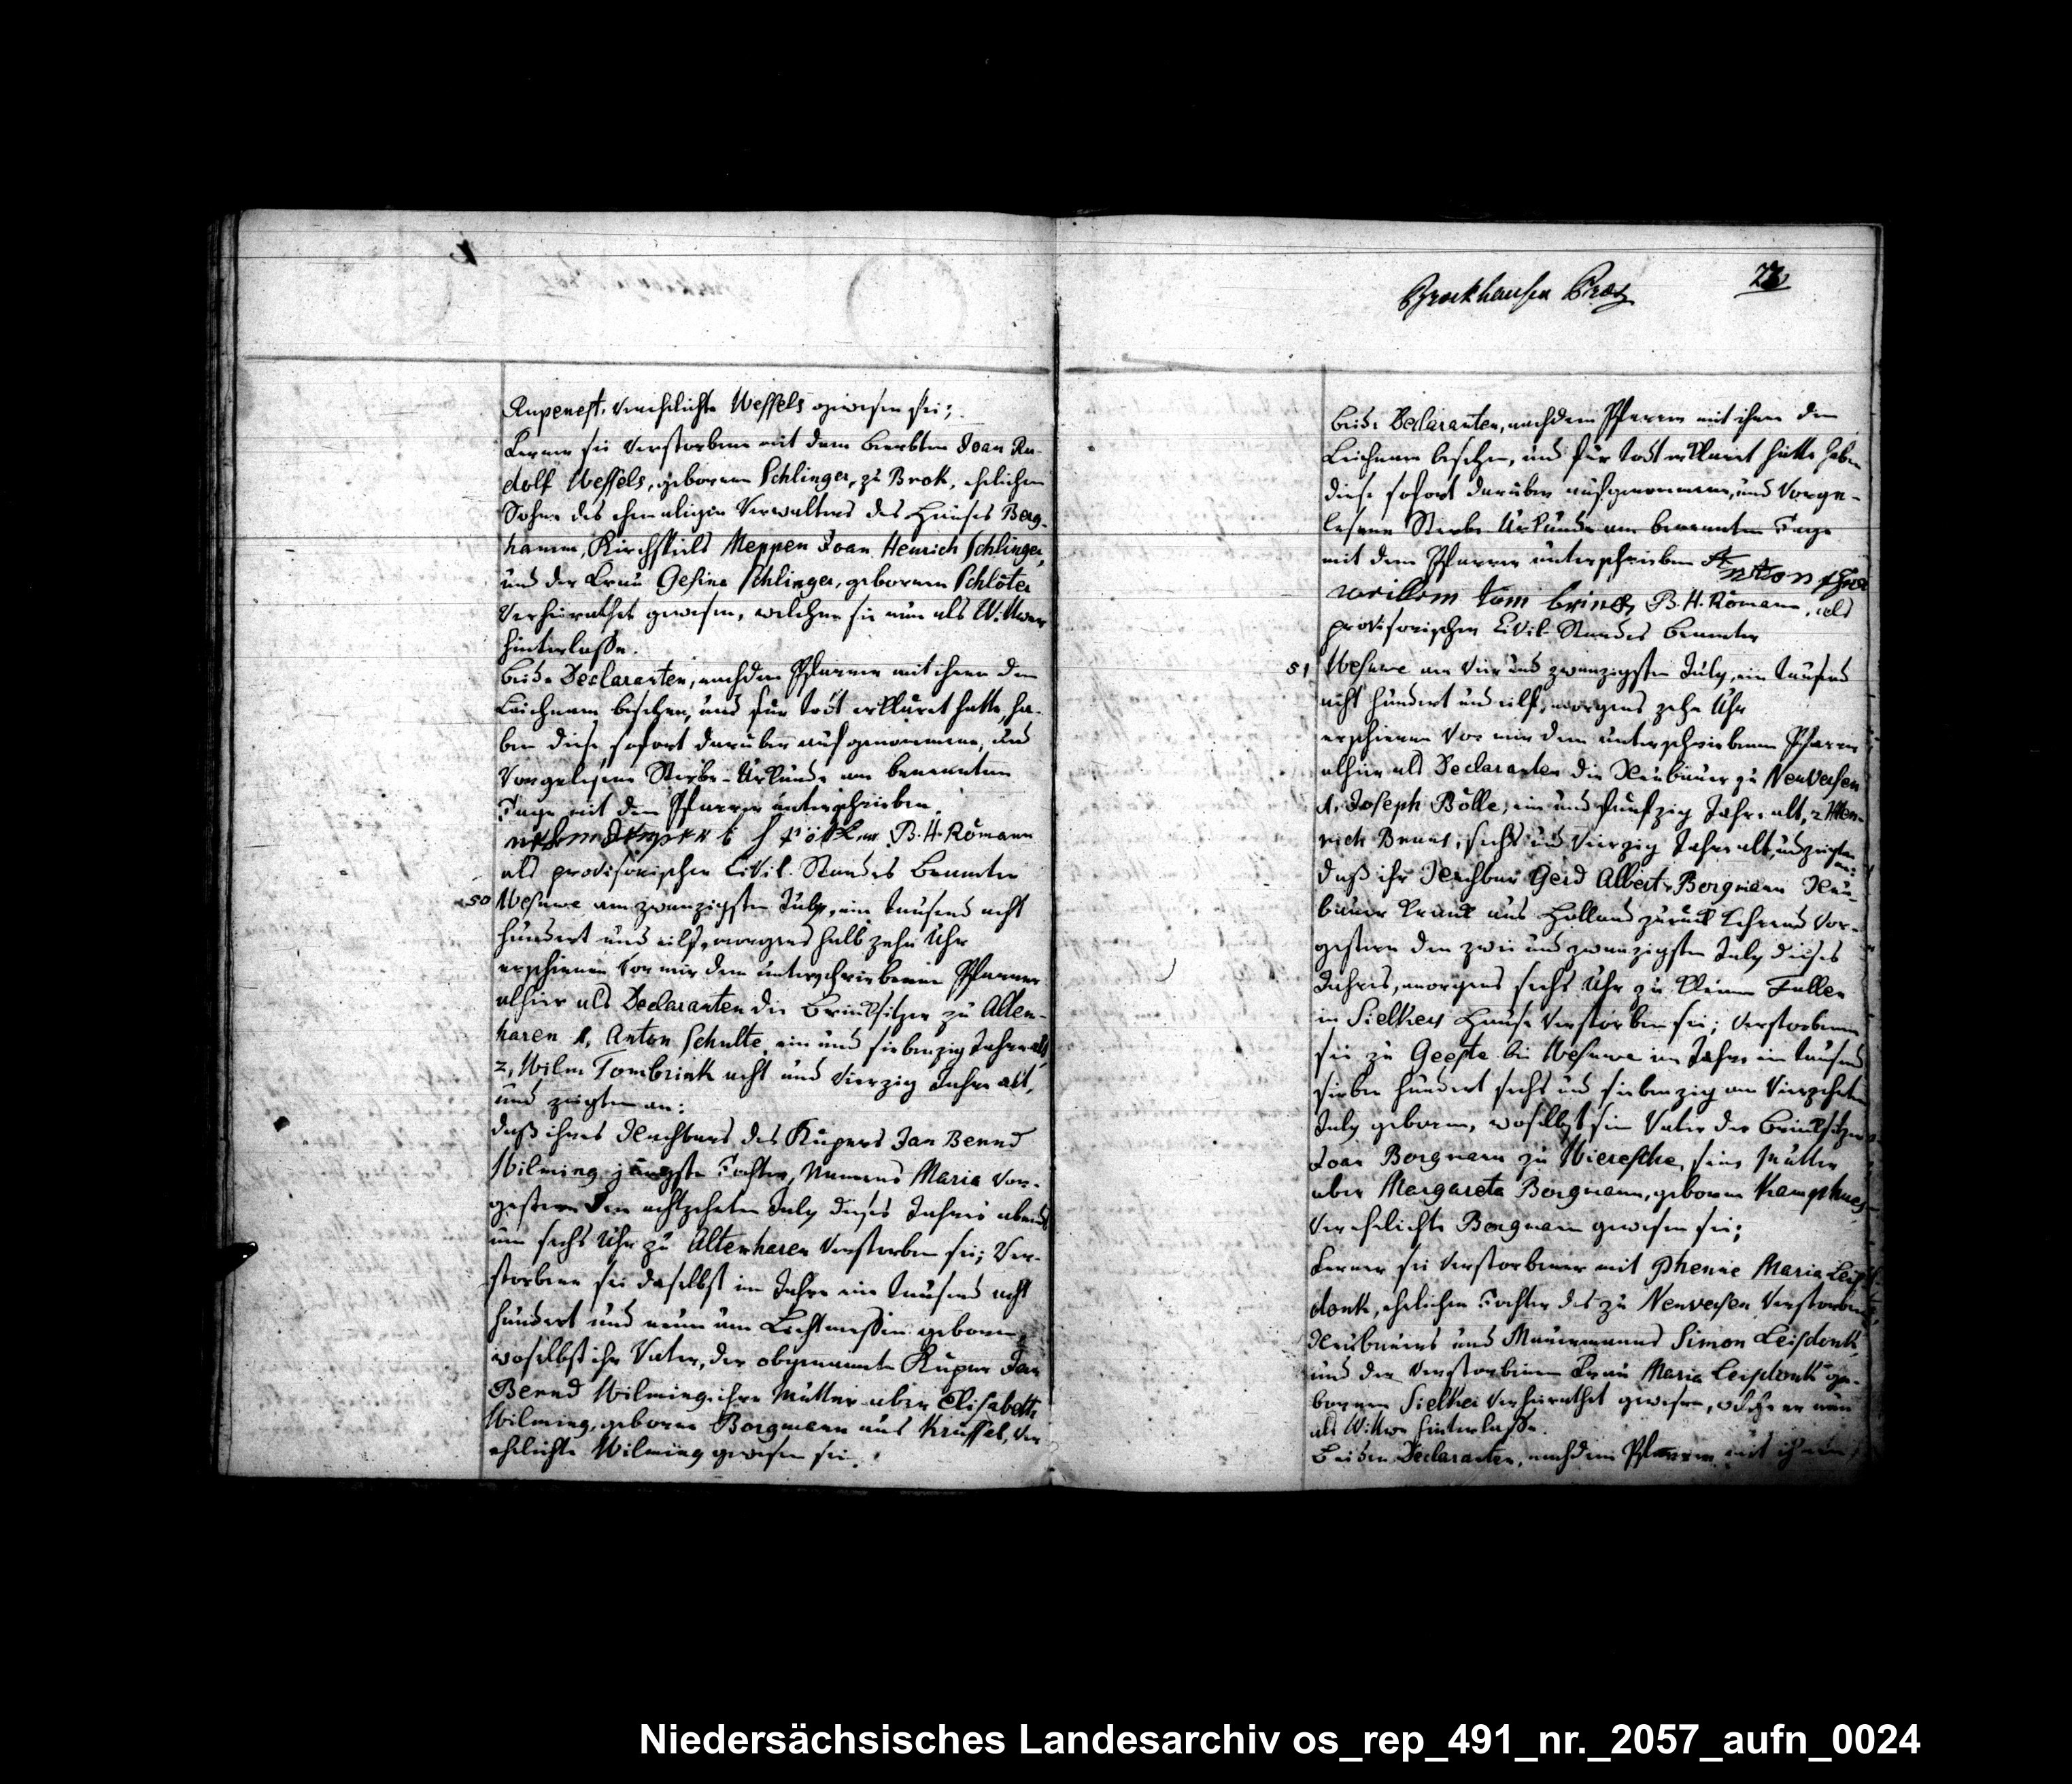 Brockhausen Præs
22
Rupenest, verehelichte Wessels gewesen sei;
Ferner sei Verstorbene mit dem Beerbten Joan Ru-
dolf Wessels, gebornen Schlinger, zu Brok, ehelichen
Sohne des ehemaligen Verwalters des Hauses Berg-
hamm, Kirchspiels Meppen Joan Henrich Schlinger,
und der Frau Gesina Schlinger, gebornen Schlöter
verheirathet gewesen, welchen sie nun als Wittwer
hinterlasse.
Beide Declaranten, nachdem Pfarrer mit ihnen den
Leichnam besehen, und für todt erkläret hatte, ha-
ben diese sofort darüber aufgenommene, und
vorgelesene Sterbe-Urkunde am benannten
Tage mit dem Pfarrer unterschrieben.
B. H. Römann
als provisorischer Civil-Standes Beamter
50 Wesuwe am zwanzigsten July, ein tausend acht
hundert und eilf, morgens halb zehn Uhr
erschienen vor mir dem unterschriebenen Pfarrer
alhier als Declaranten die Brinksitzer zu Alten-
haren 1, Anton Schulte ein und siebenzig Jahre alt,
2, Wilm Tombrink acht und vierzig Jahre alt,
und zeigten an:
daß ihres Nachbars des Kupers Jan Bernd
Wilming jüngste Tochter, Namens Maria vor-
gestern den achtzehnten July dieses Jahres abends
um sechs Uhr zu Altenharen verstorben sei; Ver-
storbene sei daselbst im Jahre ein tausend acht
hundert und neun um Lichtmessen geboren,
woselbst ihr Vater, der obgenannte Kuper Jan
Bernd Wilming, ihre Mutter aber Elisabeth
Wilming, geborne Borgmann aus Krüssel, ver-
ehelichte Wilming gewesen sei.
Beide Declaranten, nachdem Pfarrer mit ihnen den
Leichnam besehen, und für todt erkläret hatte haben
diese sofort darüber aufgenommene, und vorge-
lesene Sterbe Urkunde am benannten Tage
mit dem Pfarrer unterschrieben Anton
willem tom brinck B. H. Römann, als
provisorischer Civil-Standes Beamter
51 Wesuwe am vier und zwanzigsten July, ein tausend
acht hundert und eilf, morgens zehn Uhr
erschienen vor mir dem unterschriebenen Pfarrer
alhier als Declaranten die Neubauer zu Neuversen
1, Joseph Bölle, ein und fünfzig Jahre alt, 2 Hen-
rich Bruns, sechs und vierzig Jahre alt, und zeigten
an:
daß ihr Nachbar Gerd Albert Borgmann Neu-
bauer krank aus Holland zurück kehrend vor-
gestern den zwei und zwanzigsten July dieses
Jahres, morgens sechs Uhr zu kleinen Fullen
in Sielkers Hause verstorben sei; Verstorbener
sei zu Geeste bei Wesuwe im Jahre ein tausend
sieben hundert sechs und siebenzig am vierzehnten
July geboren, woselbst sein Vater der Brinksitzer
Joan Borgmann zu Wieresche, seine Mutter
aber Margareta Borgmann, geborne Kamphues
verehelichte Borgmann gewesen sei;
Ferner sei Verstorbener mit Phenne Maria Leis-
donk, ehelichen Tochter des zu Neuversen verstorbenen
Neubauers und Mauermanns Simon Leisdonk,
und der verstorbenen Frau Maria Leisdonk ge-
bornen Sielker verheirathet gewesen, welche er nun
als Wittwe hinterlasse.
Beiden Declaranten, nachdem Pfarrer mit ihnen
Niedersächsisches Landesarchiv os_rep_491_nr._2057_aufn_0024